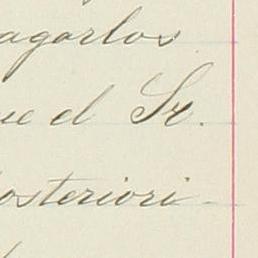 agarlos
ue el Sr.
osteriori-